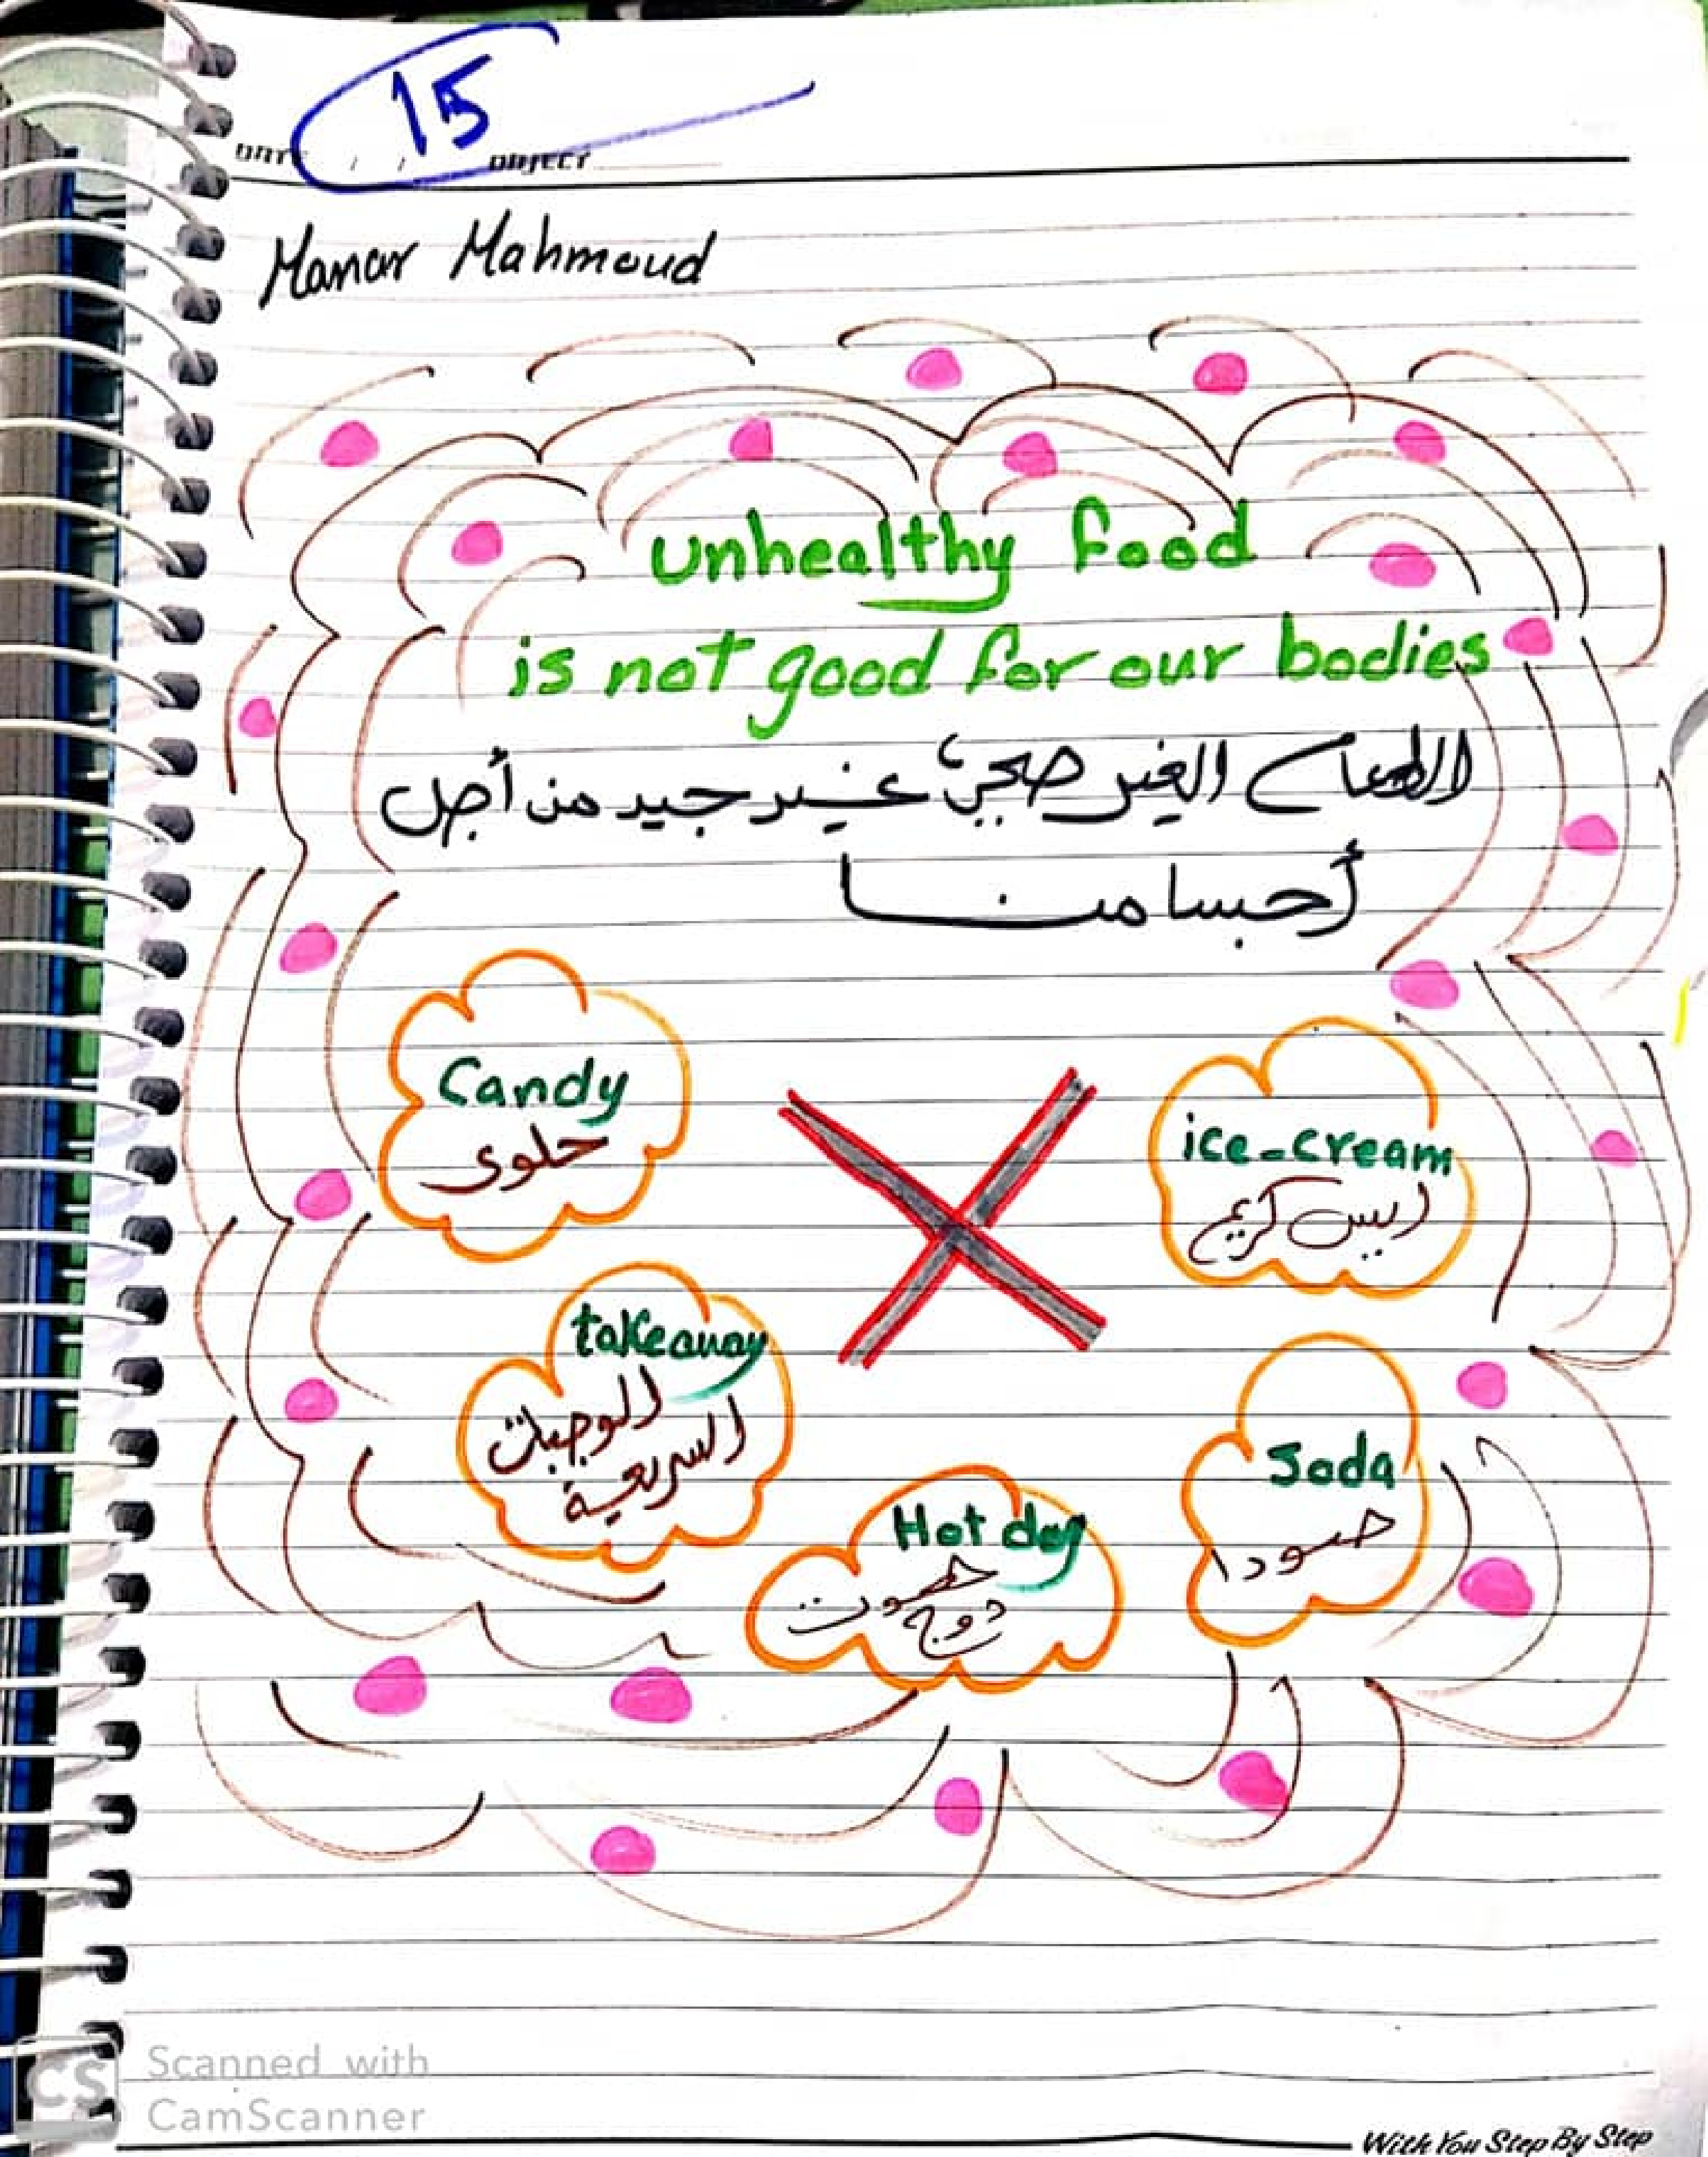 15
DATE / / OBJECT
Manar Mahmoud
unhealthy food
is not good for our bodies
الطعام الغير صحيّ غير جيد من أجل
أجسامنا
Candy
حلوى
ice-cream
ايس كريم
takeaway
الوجبات
السريعة
Soda
صودا
Hot dog
هوت
دوج
CS Scanned with
CamScanner
With You Step By Step